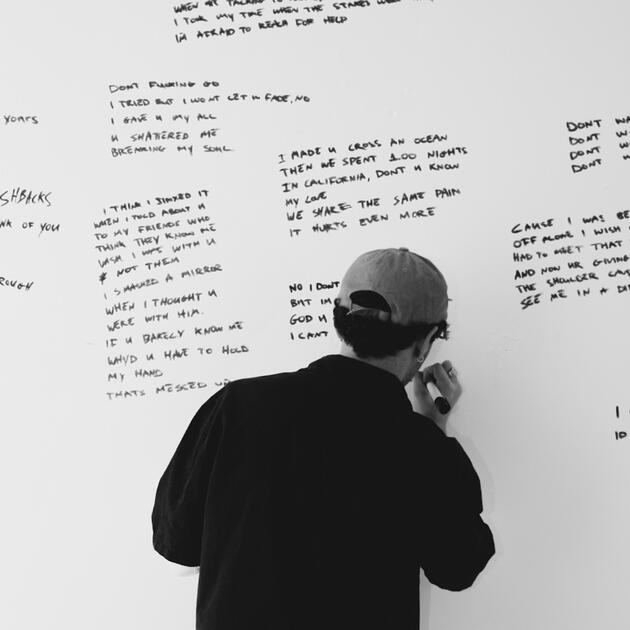 WHEN
I TOOK MY TIME WHEN THE STAKES
IM AFRAID TO REACH FOR HELP
DONT FUCKING GO
I TRIED BUT I WONT LET U FADE, NO
I GAVE U MY ALL
U SHATTERED ME
BREAKING MY SOUL
YOURS
SHBACKS
NK OF YOU
ROUGH
I THINK I JINXED IT
WHEN I TOLD ABOUT U
TO MY FRIENDS WHO
THINK THEY KNOW ME
WISH I WAS WITH U
& NOT THEM
I SMASHED A MIRROR
WHEN I THOUGHT U
WERE WITH HIM.
IF U BARELY KNOW ME
WHY'D U HAVE TO HOLD
MY HAND
THATS MESSED UP
I MADE U CROSS AN OCEAN
THEN WE SPENT 100 NIGHTS
IN CALIFORNIA, DONT U KNOW
MY LOVE
WE SHARE THE SAME PAIN
IT HURTS EVEN MORE
NO I DONT
BUT IM
GOD U
I CANT
DONT WA
DONT W
DONT W
DONT W
CAUSE I WAS BE
OFF ALONE I WISH
HAD TO MEET THAT
AND NOW UR GIVING
THE SHOULDER CAUS
SEE ME IN A DI
I
10